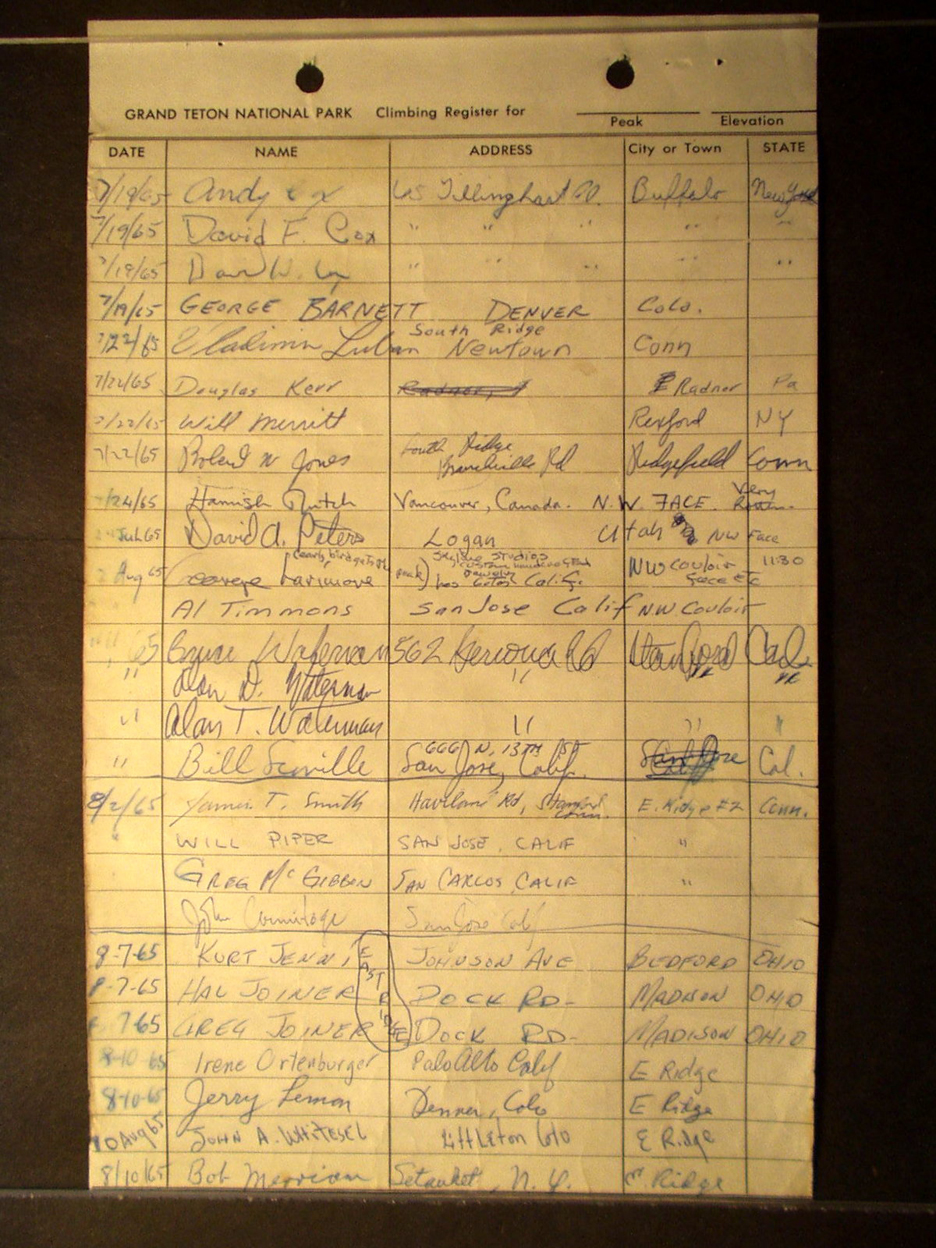 GRAND TETON NATIONAL PARK Climbing Register for
Peak Elevation
DATE NAME ADDRESS City or Town STATE
7/19/65 Andy Cox 65 Tillinghast Buffalo New York
7/19/65 David F. Cox " " " " "
7/19/65 David W. " " " " "
7/19/65 GEORGE BARNETT DENVER Colo.
South Ridge
7/22/65 Vladimir Newtown Conn
7/22/65 Douglas Kerr Radnor Pa
7/22/65 Will Merritt Rexford NY
South Ridge
7/22/65 Robert W Jones Branchville Rd Ridgefield Conn
7/24/65 Hamish Mutch Vancouver, Canada. N.W. FACE. Very Rotten.
Jul 65 David A. Peters Logan Utah NW Face
Aug 65 George Larimore Skyline Studios Los Gatos Calif. NW Couloir 1130
Al Timmons San Jose Calif NW Couloir
65 Bruce Waterman 562 Stanford Cal.
" Alan D. Waterman " " "
" Alan T. Waterman " " "
666 N. 13TH ST
" Bill San Jose, Calif. Cal.
8/2/65 James T. Smith Haviland Rd, Stamford Conn. E. Ridge Conn.
" WILL PIPER SAN JOSE, CALIF "
GREG McGIBBON SAN CARLOS CALIF "
John San Jose Calif
8-7-65 KURT JENNI JOHNSON AVE BEDFORD OHIO
EAST RIDGE
8-7-65 HAL JOINER DOCK RD- MADISON OHIO
8-7-65 GREG JOINER DOCK RD- MADISON OHIO
8-10 65 Irene Ortenburger Palo Alto Calif E Ridge
8-10-65 Jerry Lemon Denver, Colo E Ridge
10 Aug 65 JOHN A. WHITESEL Littleton Colo E Ridge
8/10/65 Bob Merriam Setauket, N.Y. E. Ridge